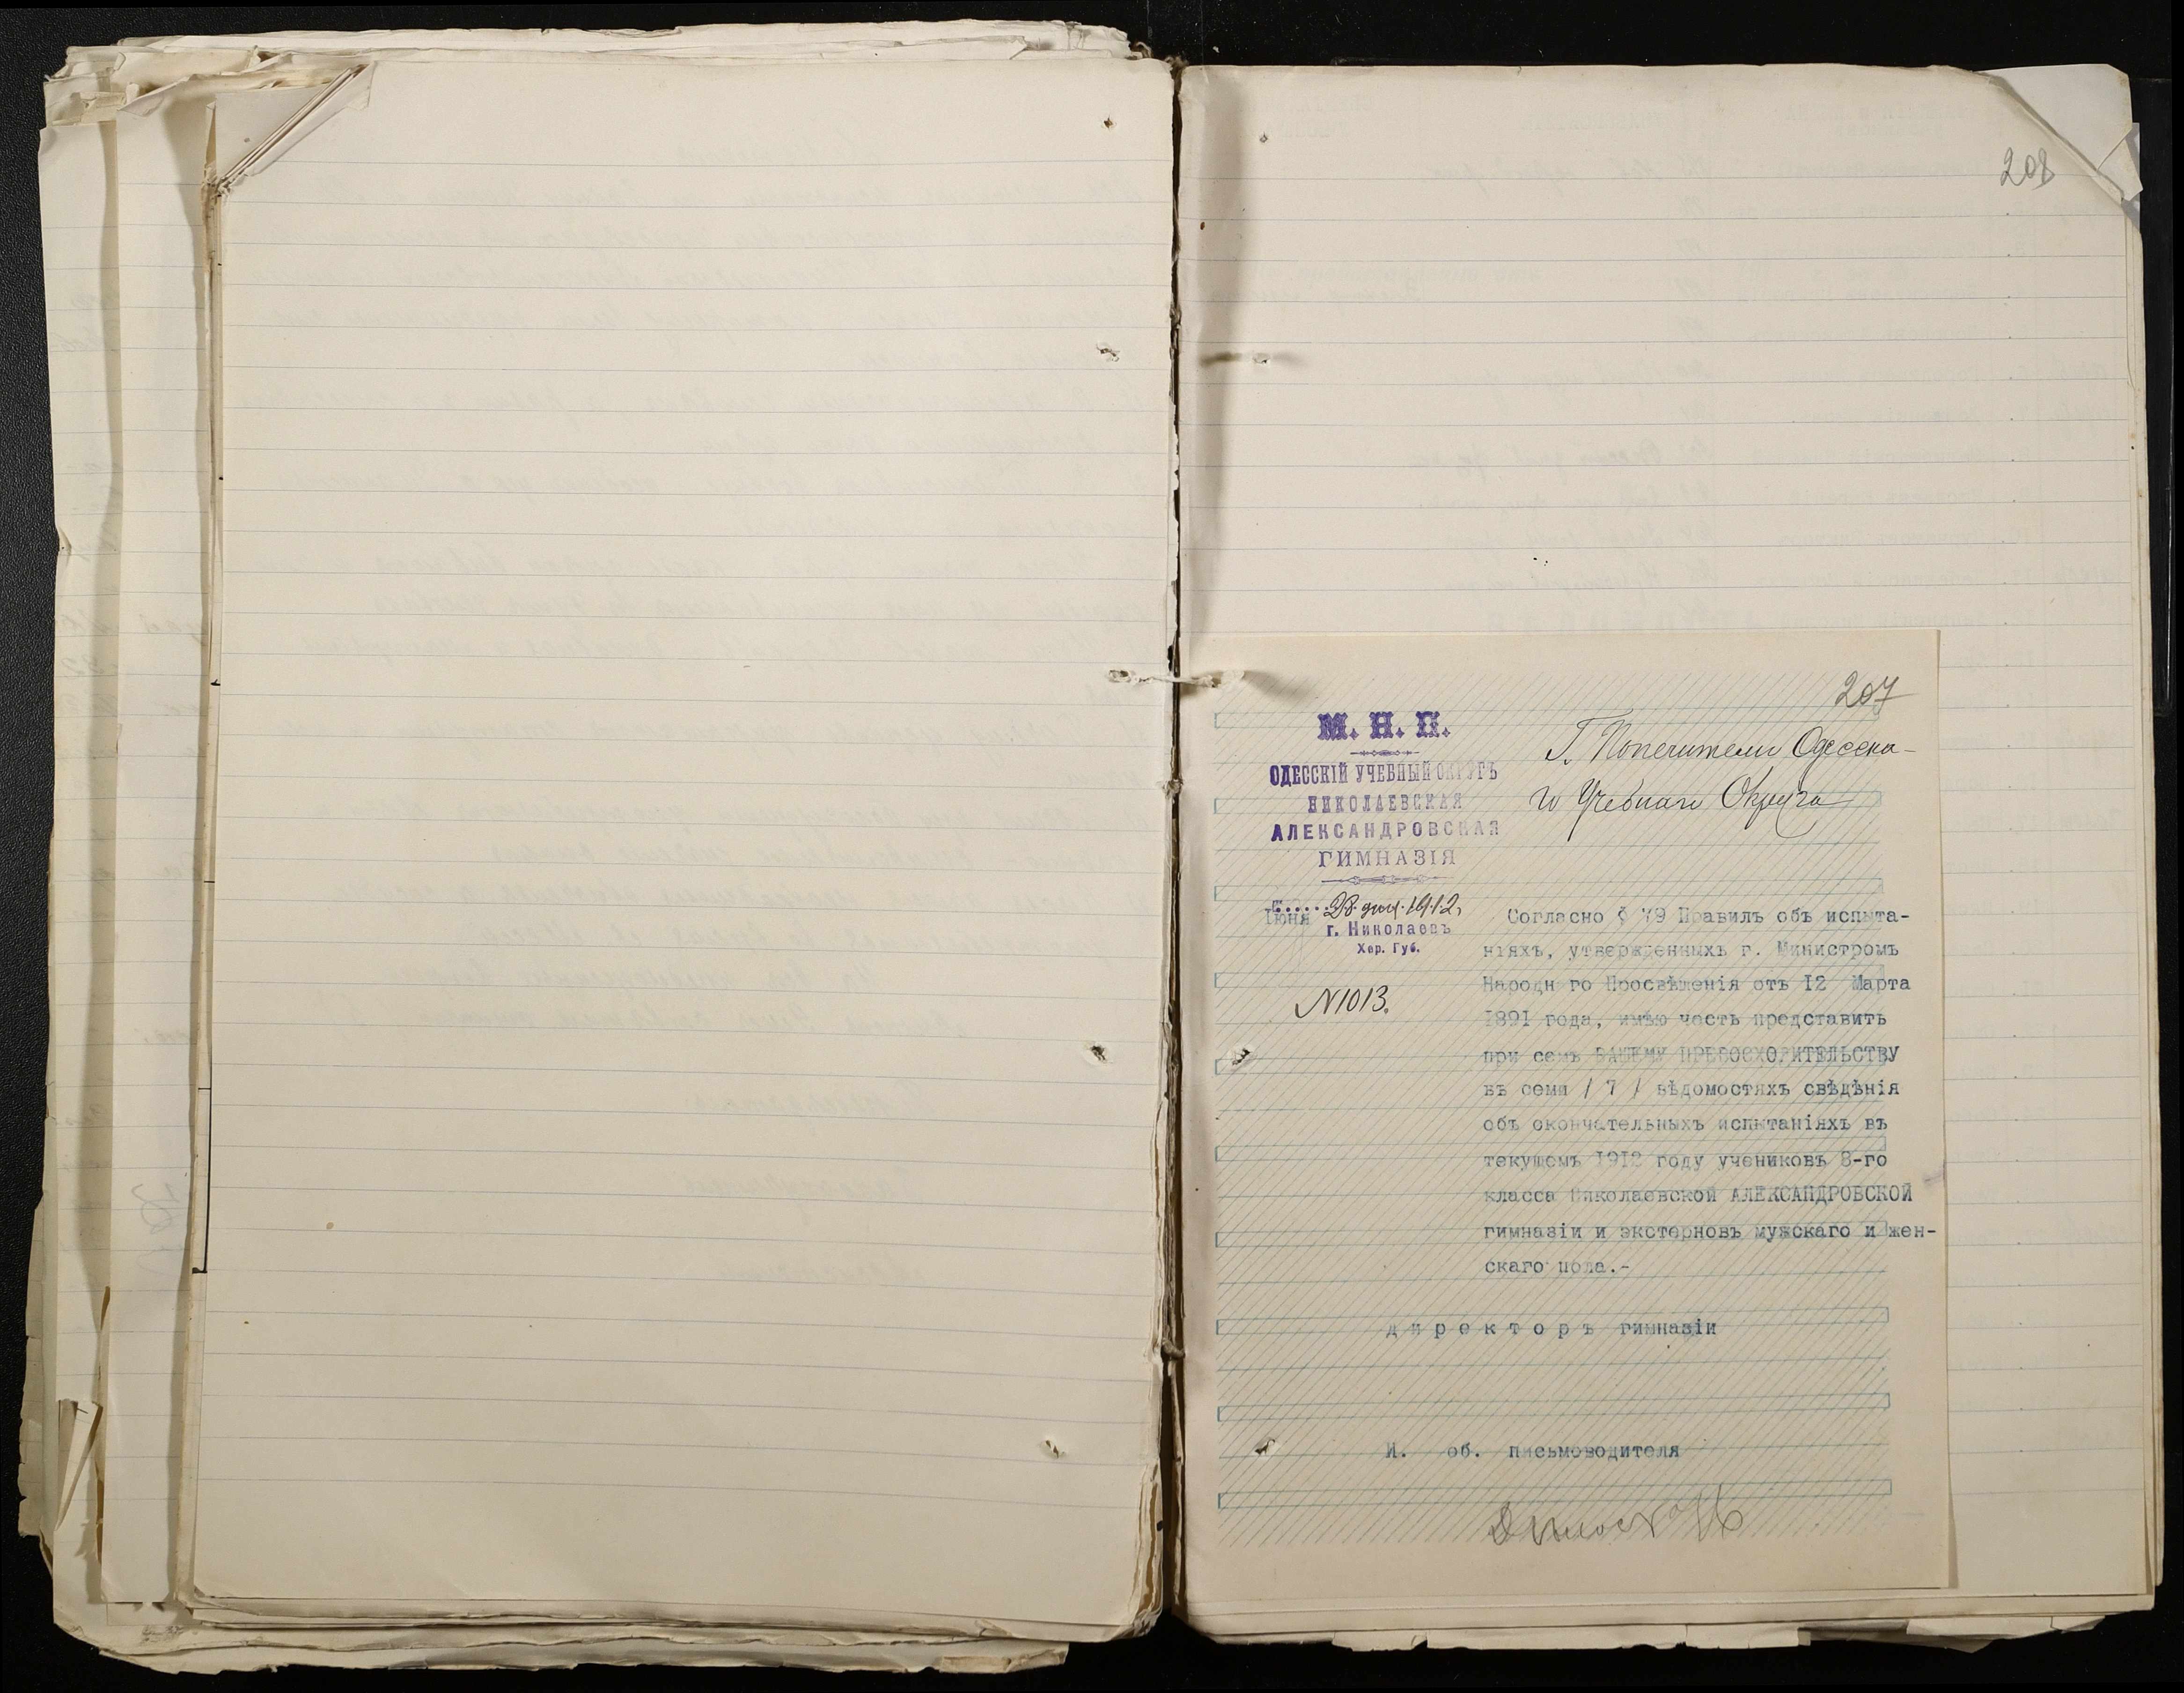 208
207
М. Н. П.
ОДЕССКІЙ УЧЕБНЫЙ ОКРУГЪ
НИКОЛАЕВСКАЯ
АЛЕКСАНДРОВСКАЯ
ГИМНАЗІЯ
Іюня 28 дня 1912
г. Николаевъ
Хер. Губ.
N1013.
Г. Попечителю Одесска-
го Учебнаго Округа
Согласно § 79 Правилъ объ испыта-
ніяхъ, утвержденныхъ г. Министромъ
Народн го Просвѣщенія отъ 12 Марта
1891 года, имѣю честь представить
при семъ ВАШЕМУ ПРЕВОСХОДИТЕЛЬСТВУ
въ семи / 7 / вѣдомостяхъ свѣдѣнія
объ окончательныхъ испытаніяхъ въ
текущемъ 1912 году учениковъ 8-го
класса Николаевской АЛЕКСАНДРОВСКОЙ
гимназіи и экстерновъ мужскаго и жен-
скаго пола.-
д и р е к т о р ъ гимназіи
И. об. письмоводителя